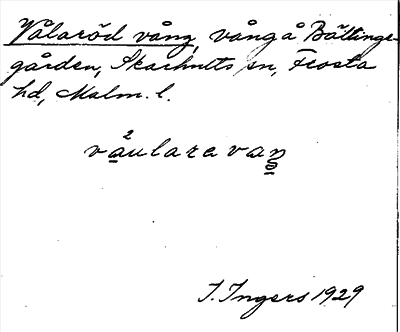 Vålaröd vång, vång å Bältinge-
gården, Skarhults sn, Frosta
hd, Malm. l.
våularavaŋ
I. Ingers 1929